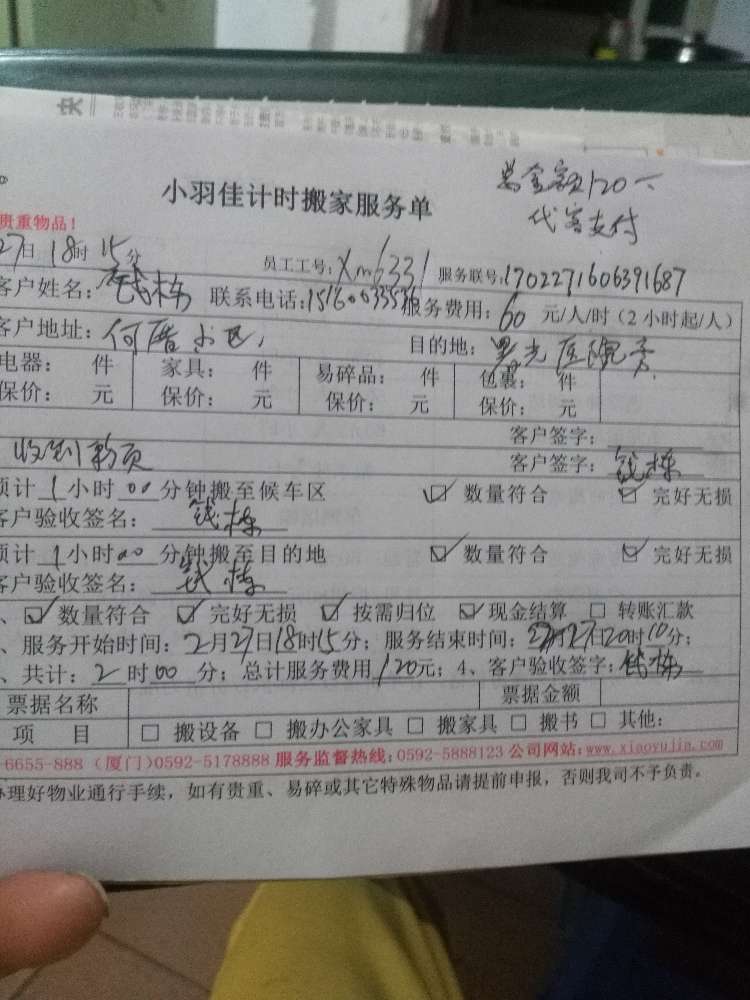 总金额120元
代客支付
小羽佳计时搬家服务单
贵重物品!
27日 18时 15分 员工工号:Xm6331 服务联号:1702271606391687
客户姓名:钱栋 联系电话: 服务费用:60 元/人/时(2小时起/人)
客户地址:何厝小区, 目的地:眼光医院旁
电器: 件 家具: 件 易碎品: 件 包裹: 件
保价: 元 保价: 元 保价: 元 保价: 元
客户签字:
收到款项 客户签字:钱栋
预计1小时00分钟搬至候车区 ☑数量符合 ☑完好无损
客户验收签名:钱栋
预计1小时00分钟搬至目的地 ☑数量符合 ☑完好无损
客户验收签名:钱栋
、☑数量符合 ☑完好无损 ☑按需归位 ☑现金结算 □转账汇款
、服务开始时间:2月27日18时15分;服务结束时间:2月27日20时10分;
、共计:2时00分;总计服务费用120元;4、客户验收签字:钱栋
票据名称 票据金额
项 目 □搬设备 □搬办公家具 □搬家具 □搬书 □其他:
-6655-888(厦门)0592-5178888 服务监督热线:0592-5888123 公司网站:www.xiaoyujia.com
办理好物业通行手续,如有贵重、易碎或其它特殊物品请提前申报,否则我司不予负责。